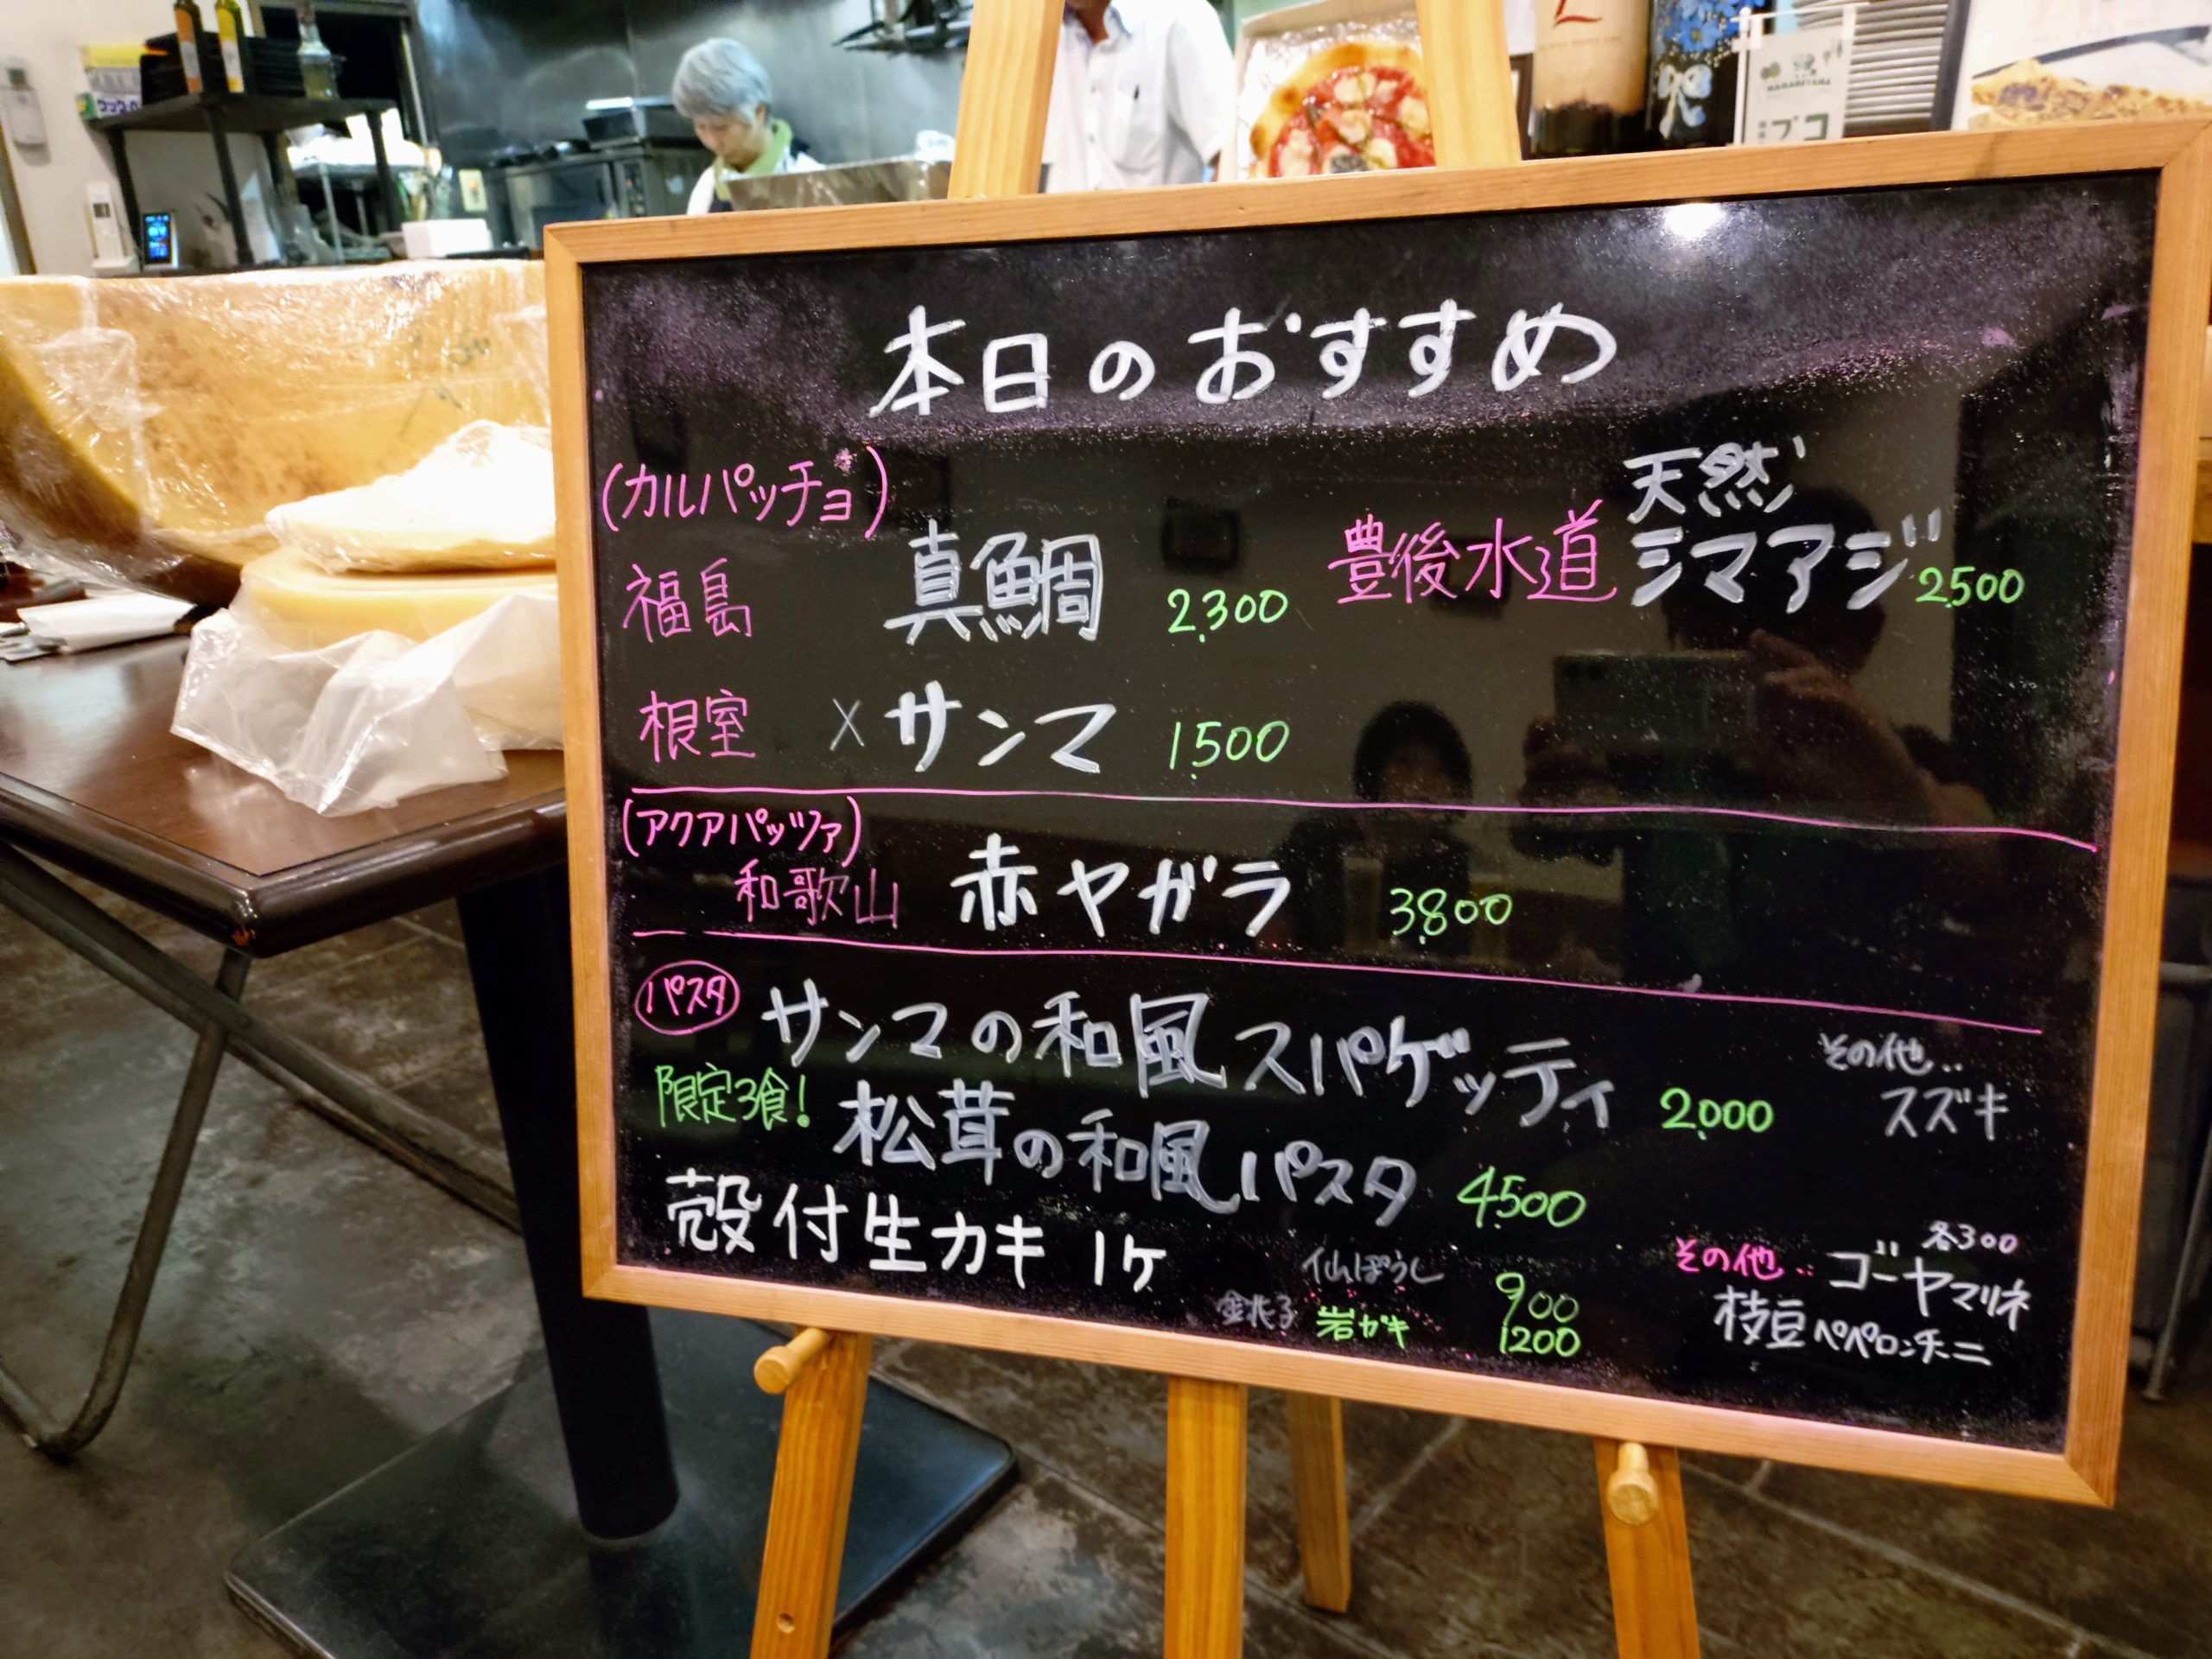 本日のおすすめ
(カルパッチョ)
福島 真鯛 2,300
豊後水道 天然
シマアジ 2,500
根室 × サンマ 1,500
(アクアパッツァ)
和歌山 赤ヤガラ 3,800
パスタ サンマの和風スパゲッティ 2,000
その他..
スズキ
限定3食! 松茸の和風パスタ 4,500
殻付生カキ 1ヶ
仙ぽうし 900
金兆子 岩ガキ 1200
各300
その他.. ゴーヤマリネ
枝豆ペペロンチーニ